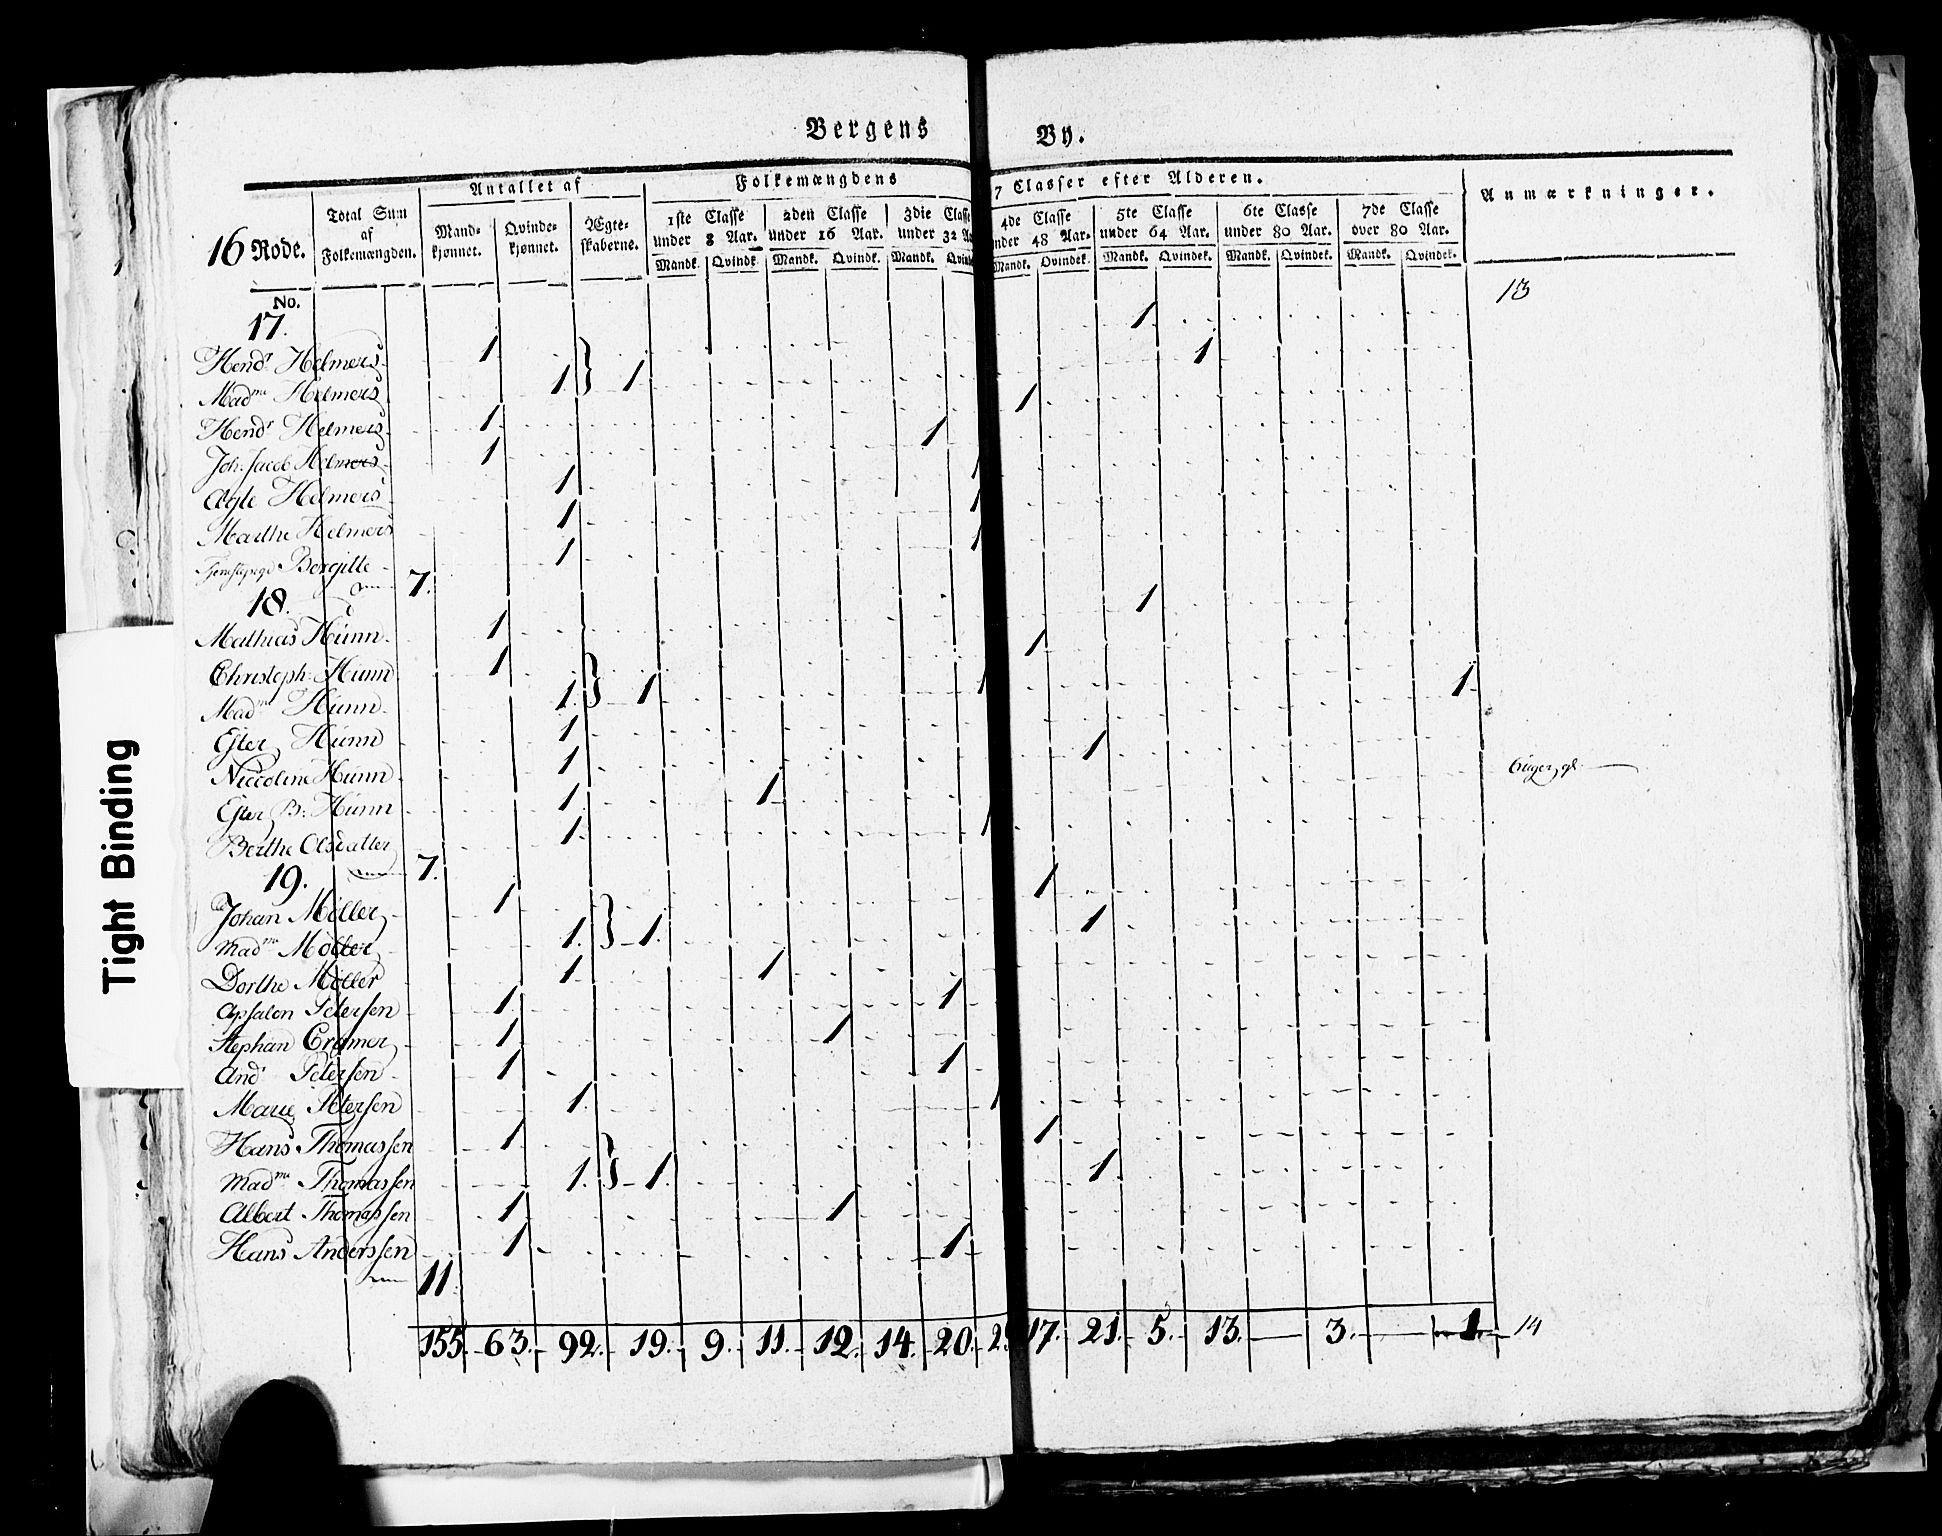 Bergens By.
Antallet af Folkemængdens 7 Classer efter Alderen. Anmærkninger.
16 Rode. Total Sum af Folkemængden. Mand-kjønnet. Qvinde-kjønnet. Ægte-skaberne. 1ste Classe under 8 Aar. 2den Classe under 16 Aar. 3die Classe under 32 4de Classe 48 Aar. 5te Classe under 64 Aar. 6te Classe under 80 Aar. 7de Classe over 80 Aar.
Mandk. Qvindk. Mandk. Qvindk. Mandk. Mandk. Qvindek. Mandk. Qvindek. Mandk. Qvindek. Mandk. Qvindek.
No. 13
17. 
Hendr Helmers 1 1
Madme Helmers 1 } 1 1
Hendr Helmers 1 1
Joh. Jacob Helmers 1 1
Helmers 1 1
Marthe Helmers 1 1
Bergitte 1 1
7.
18.
Mathias Hünn 1 1
Christoph. Hünn 1 1
Madme Hünn 1 } 1 1
Ester Hünn 1 1
Niccoline Hünn 1 1
Ester B: Hünn 1 1
Berthe Olsdatter 1 1
7.
19.
Johan Möller 1 1
Madme Möller 1. } 1. 1
Dorthe Möller 1 1
Apsalon Petersen 1 1
Stephan Cramer 1 1
Andr Petersen 1 1
Marie Petersen 1 1
Hans Thomassen 1 1
Madme Thomassen 1. } 1. 1
Albert Thomassen 1 1
Hans Anderssen 1 1
11.
155. 63. 92. 19. 9. 11. 12. 14. 20. 17. 21. 5. 13. 3. 1. 14
Tight Binding